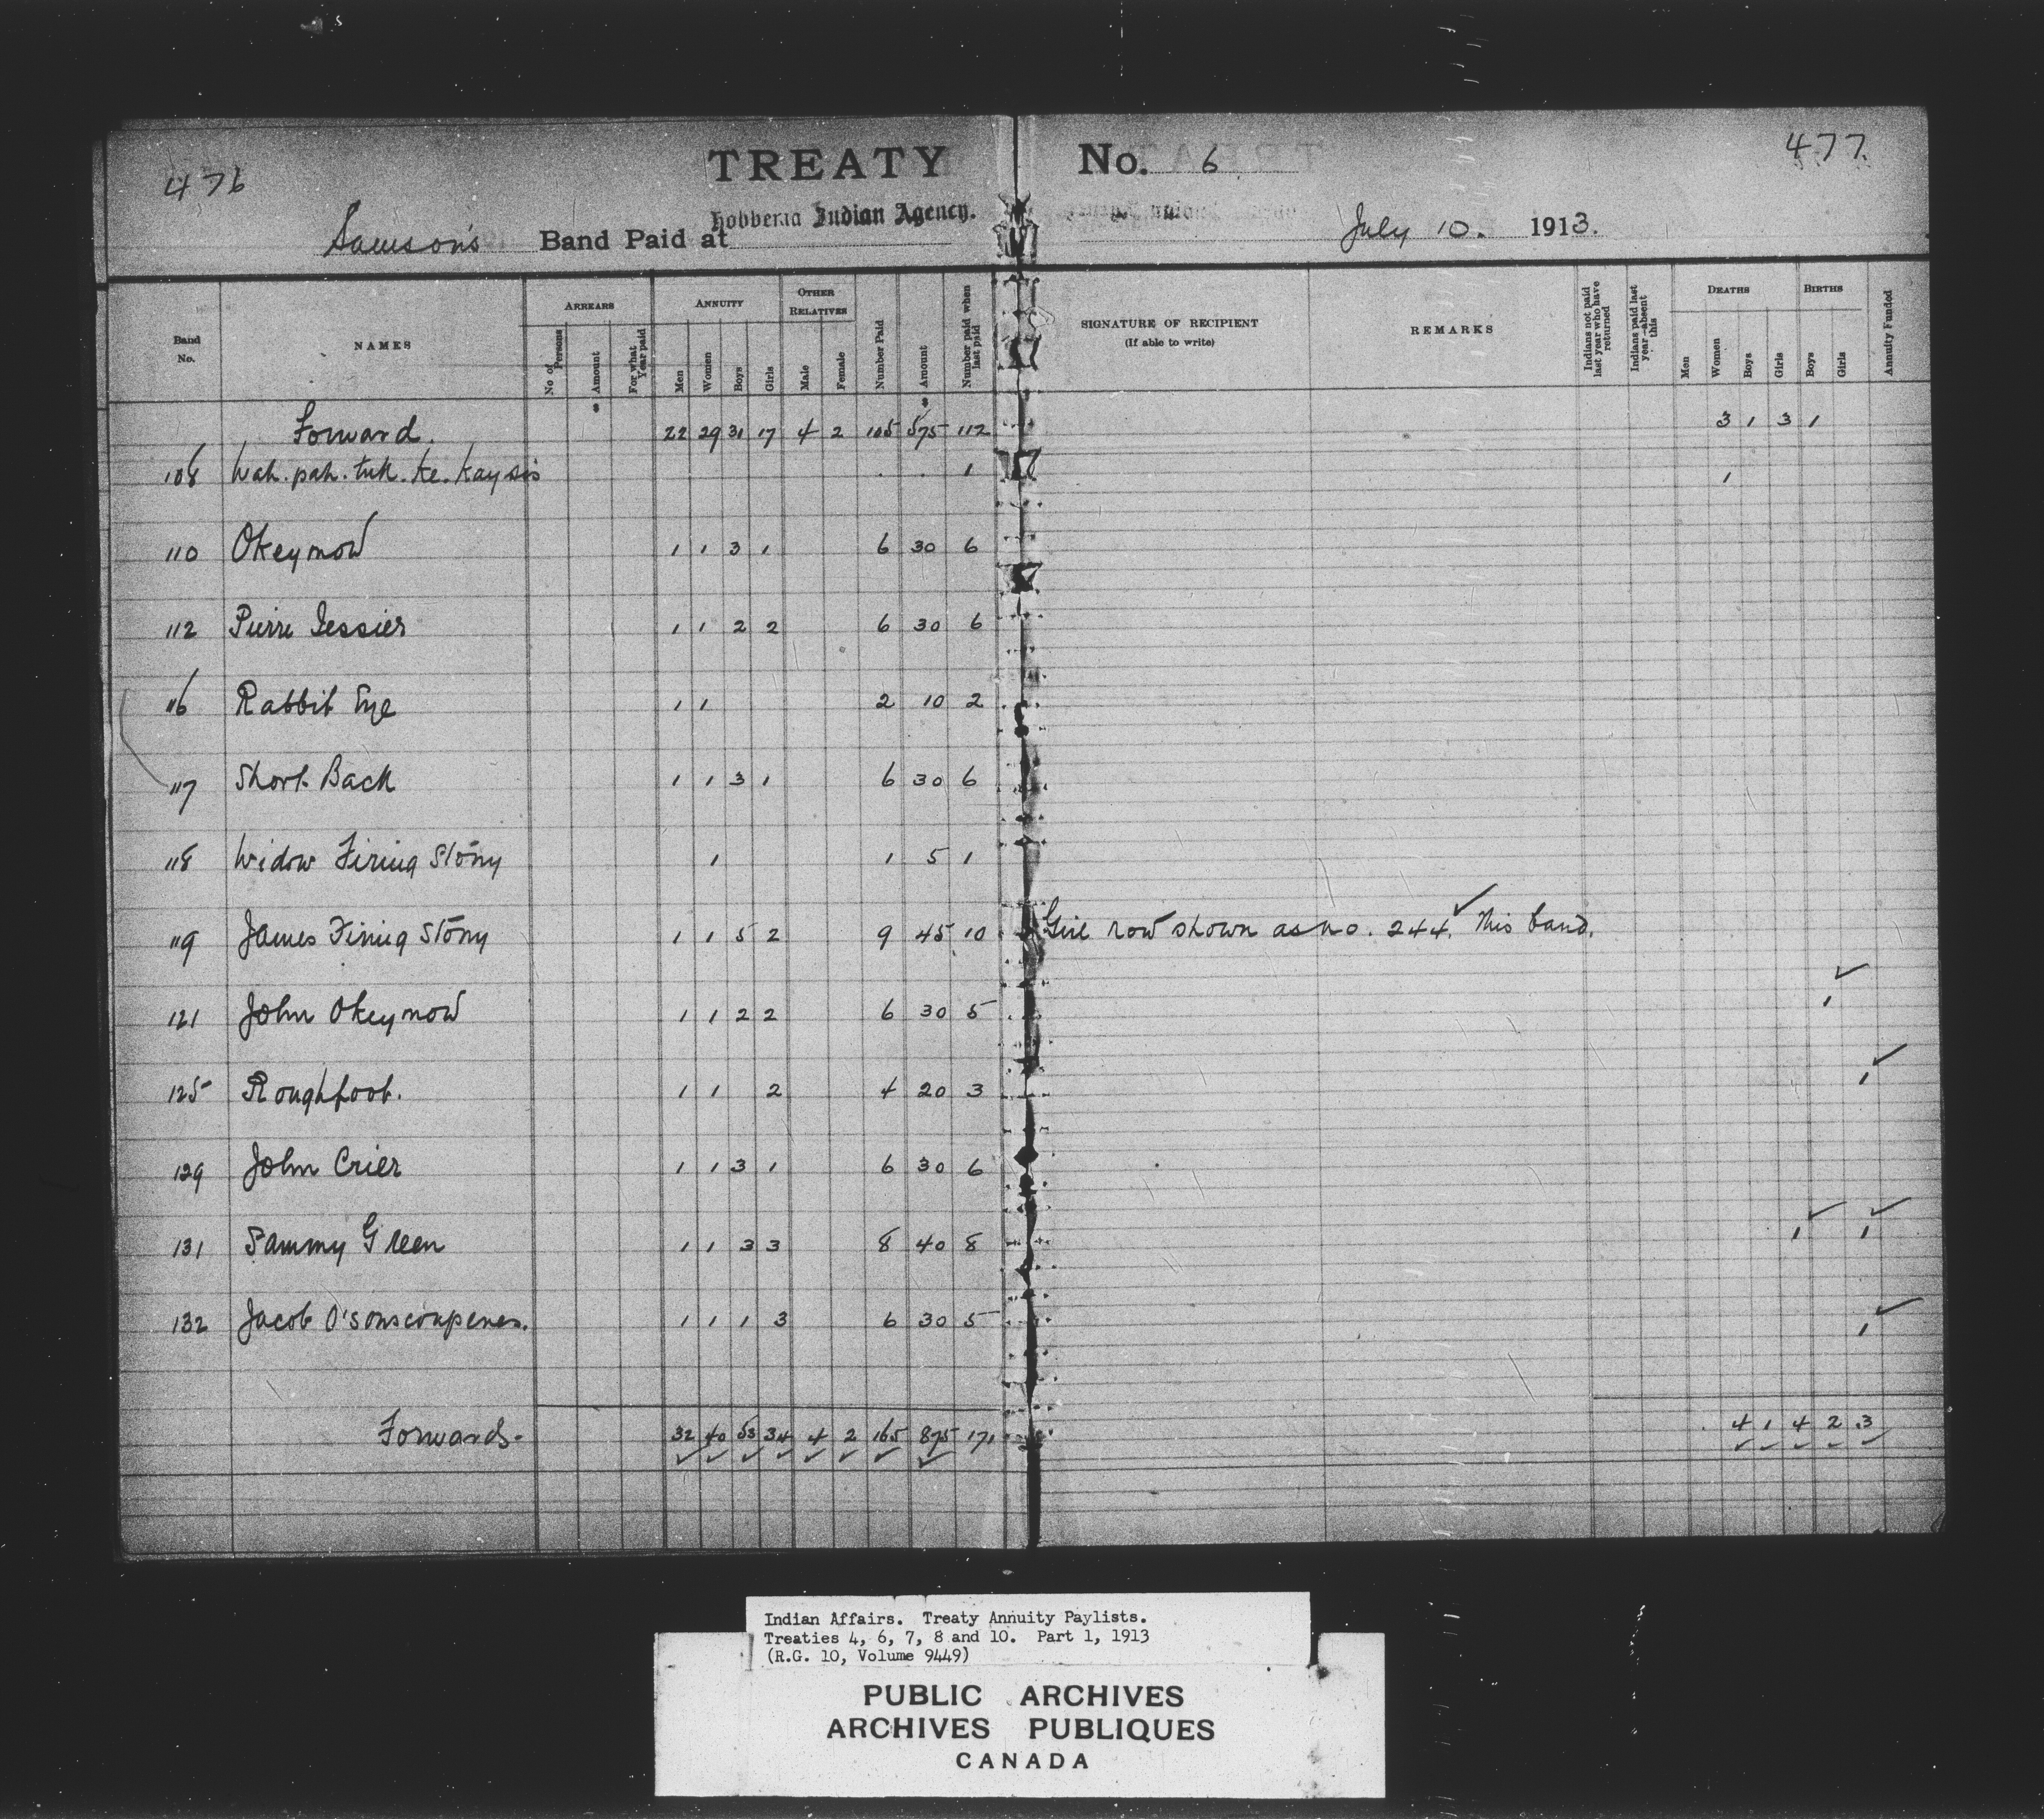 476
TREATY No. 6
477.
Samson's Band Paid at Hobbema Indian Agency. July 10. 1913.
Band No. NAMES ARREARS No of Persons Amount For what Year paid ANNUITY Men Women Boys Girls OTHER RELATIVES Male Female Number Paid Amount Number paid when last paid SIGNATURE OF RECIPIENT (If able to write) REMARKS Indians not paid last year who have returned Indians paid last year—absent this DEATHS Men Women Boys Girls BIRTHS Boys Girls Annuity Funded
$ $
Forward. 22 29 31 17 4 2 105 575 112 3 1 3 1
108 Wah.pah.tuk.ke.kaysis . . 1 1
110 Okeymow 1 1 3 1 6 30 6
112 Pierre Tessier 1 1 2 2 6 30 6
116 Rabbit Eye 1 1 2 10 2
117 Short Back 1 1 3 1 6 30 6
118 Widow Firing Stony 1 1 5 1
119 James Firing Stony 1 1 5 2 9 45 10 Girl now shown as no. 244. ✓ This band.
121 John Okeymow 1 1 2 2 6 30 5 1 ✓
125 Roughfoot. 1 1 2 4 20 3 1 ✓
129 John Crier 1 1 3 1 6 30 6
131 Sammy Green 1 1 3 3 8 40 8 1 ✓ 1 ✓
132 Jacob 1 1 1 3 6 30 5 1 ✓
Forwards. 32 40 53 34 4 2 165 875 171 4 1 4 2 3
✓ ✓ ✓ ✓ ✓ ✓ ✓ ✓ ✓ ✓ ✓ ✓ ✓
Indian Affairs. Treaty Annuity Paylists.
Treaties 4, 6, 7, 8 and 10. Part 1, 1913
(R.G. 10, Volume 9449)
PUBLIC ARCHIVES
ARCHIVES PUBLIQUES
CANADA